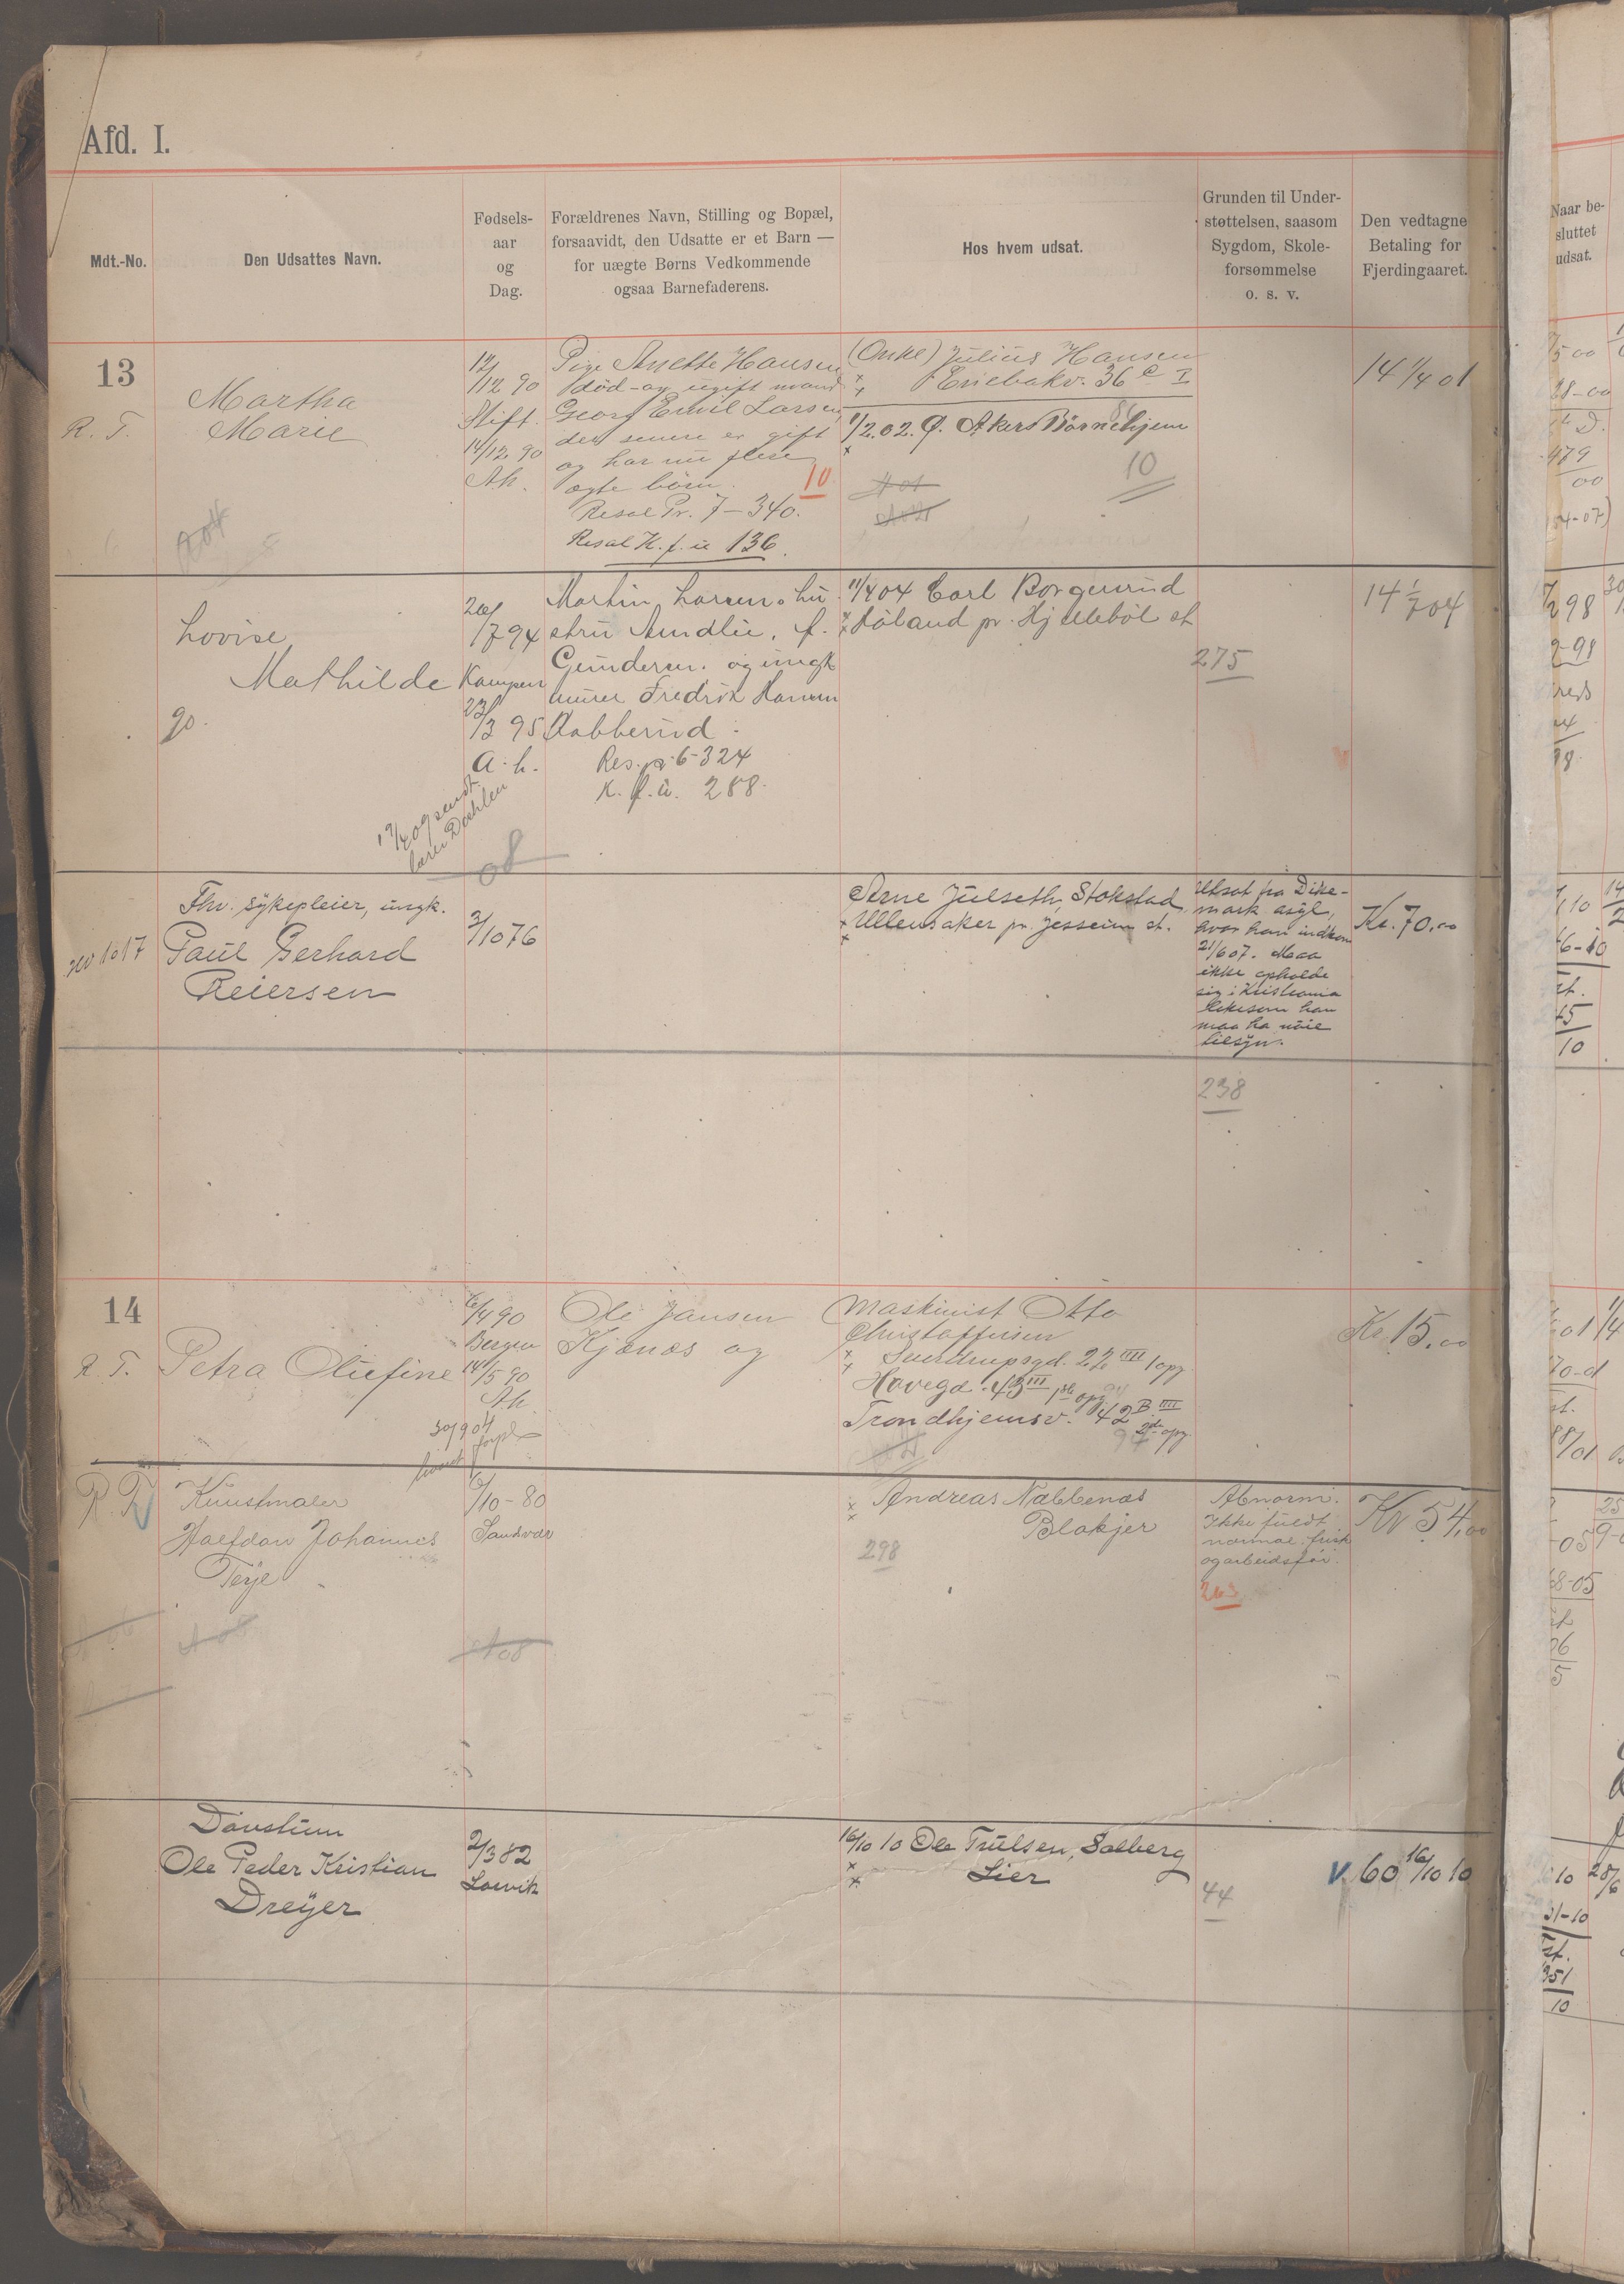 Afd. I.
Mdt.-No.
Den Udsattes Navn.
Fødsels-
aar
og
Dag.
Forældrenes Navn, Stilling og Bopæl,
forsaavidt, den Udsatte er et Barn —
for uægte Børns Vedkommende
ogsaa Barnefaderens.
Hos hvem udsat.
Grunden til Under-
støttelsen, saasom
Sygdom, Skole-
forsømmelse
o. s. v.
Den vedtagne
Betaling for
Fjerdingaaret.
Naar be-
sluttet
udsat.
13
R. T.
Martha
Marie
12/12 90
Stift.
14/12 90
Ak.
Pige Anette Hansen
død - og ugift mand
Georg Emil Larsen,
der senere er gift
og har nu flere
ægte børn.
10
Resol Pr. 7 - 340.
Resol K. f. u 136.
(Onkel) Julius Hansen
Enebakv. 36 c I
1/2.02. Ø. Akers Børnehjem
10
14 1/4 01
Lovise
Mathilde
go.
26/7 94
Kampen
23/3 95
a. h.
Martin Larsen o. hu
stru Amalie, f.
Gundersen. og ungk
murer Fredrik Hansen
Aabberud.
Res. pr. 6-324
K. f. u. 288.
08
11/4 04 Carl Borgerud
Høland pr. Hjellebøl st
275
14 1/7 04
1017
Fhv. sykepleier, ungk.
Paul Gerhard
Reiersen
3/10 76
Arne Julseth, Stokstad
Ullensaker pr. Jessheim st.
Utsat fra Dike-
mark asyl,
hvor han indkom
21/6 07. Maa
ikke opholde
sig i Kristiania
likesom han
maa ha nøie
tilsyn.
238
Kr. 70.00
14
R. T.
Petra Oliefine
6/4 90
Bergen
14/5 90
Ak.
30/9 04
Ole Jansen
Kjønøs og
Maskinist Otto
Christoffersen
Sverdrupsgd. 22 III 1 opg
Havegd. 43 III 1ste opg
Trondhjemsv. 42 B III
2de opg.
Kr. 15.00
R. T.
Kunstmaler
Halfdan Johannes
Terje
6/10 - 80
Sandsvær
Andreas Nabbenas
Blakjer
298
Abnorm.
Ikke fuldt
normal. frisk
og arbeidsfør.
263
Kr 54.00
Døvstum
Ole Peder Kristian
Dreyer
2/3 82
Larvik
16/10 10 Ole Trulsen, Solberg
Lier
44
V. 60 16/10 10